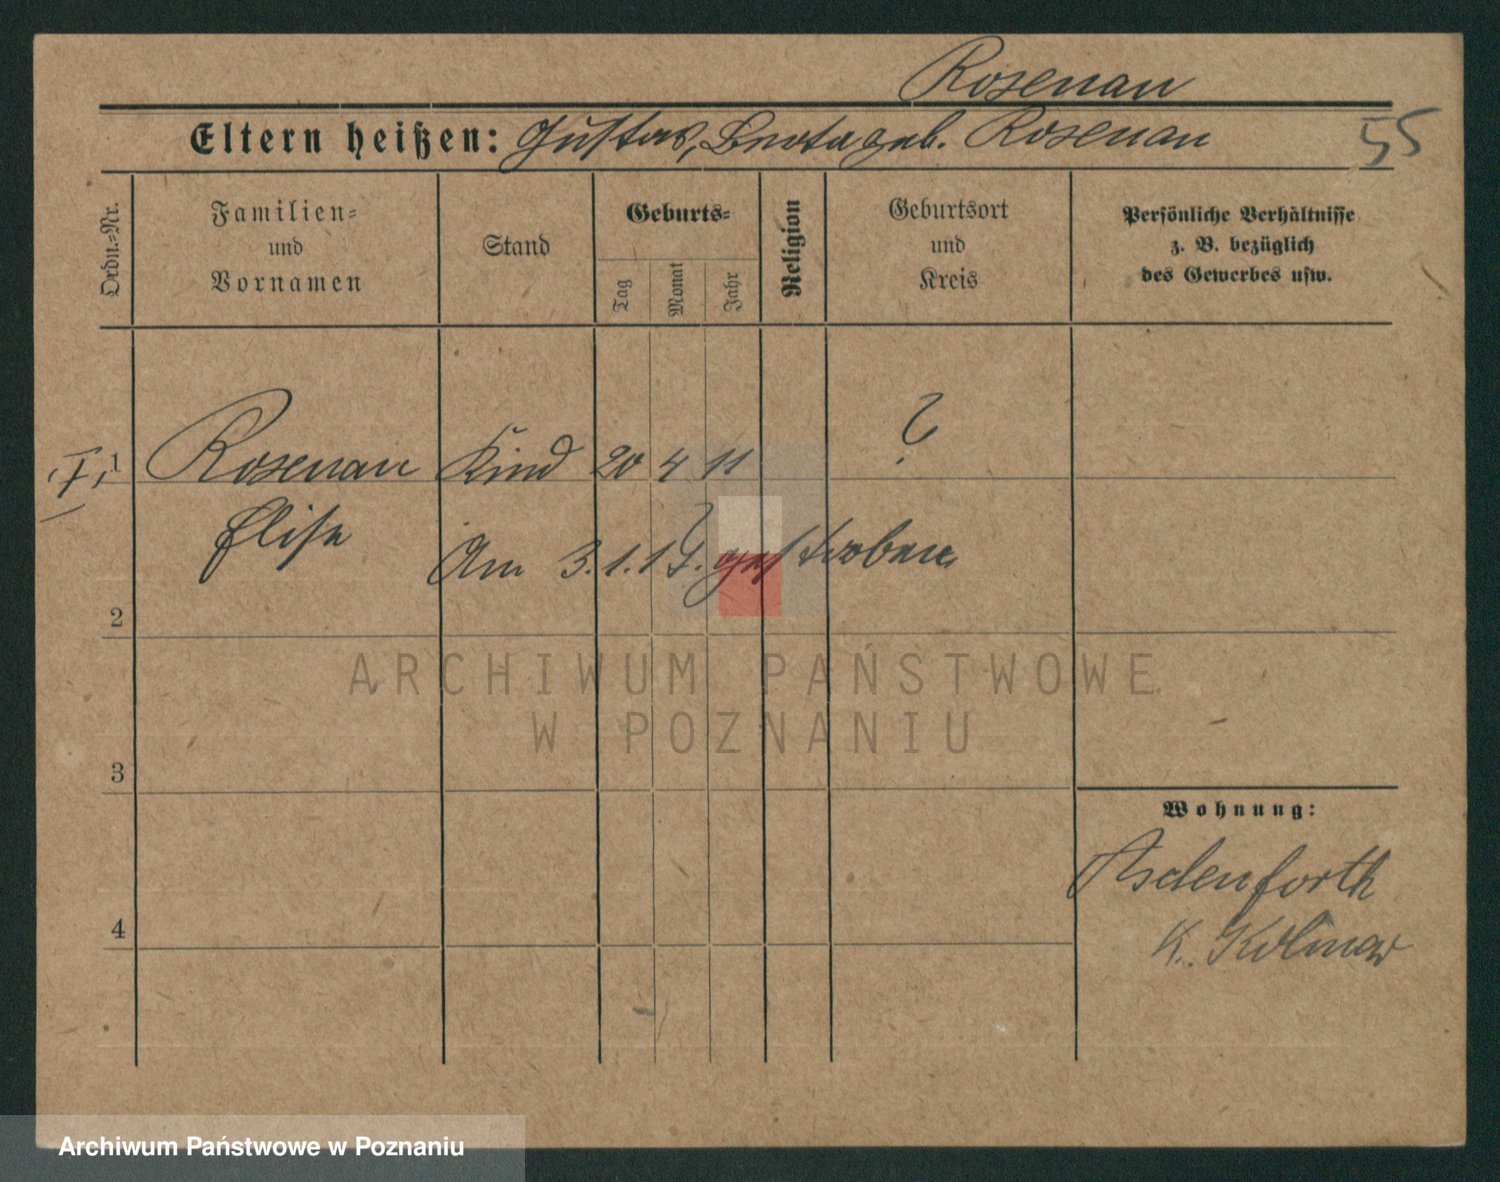 Rosenau
Eltern heißen: Gustav, Berta geb. Rosenau 55
Ordn.=Nr.
Familien=
und
Vornamen
Stand
Geburts=
Tag
Monat
Jahr
Religion
Geburtsort
und
Kreis
Persönliche Verhältnisse
z. B. bezüglich
des Gewerbes usw.
1 Rosenau Kind 20 4 11 ?
Elise
Am 3.1.19. gestorben
2
ARCHIWUM PAŃSTWOWE
W POZNANIU
3
Wohnung:
4
K. Kolmar
Archiwum Państwowe w Poznaniu